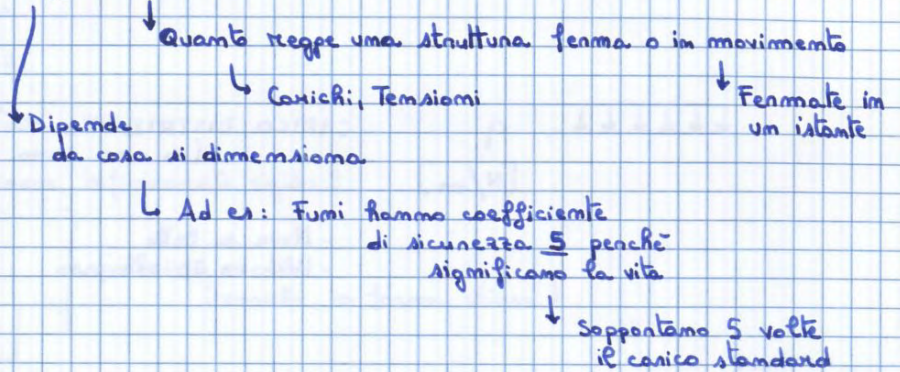 Quanto regge una struttura ferma o in movimento
Carichi, Tensioni
Fermate in
un istante
Dipende
da cosa si dimensiona
Ad es: Funi hanno coefficiente
di sicurezza 5 perchè
significano la vita
Sopportano 5 volte
il carico standard